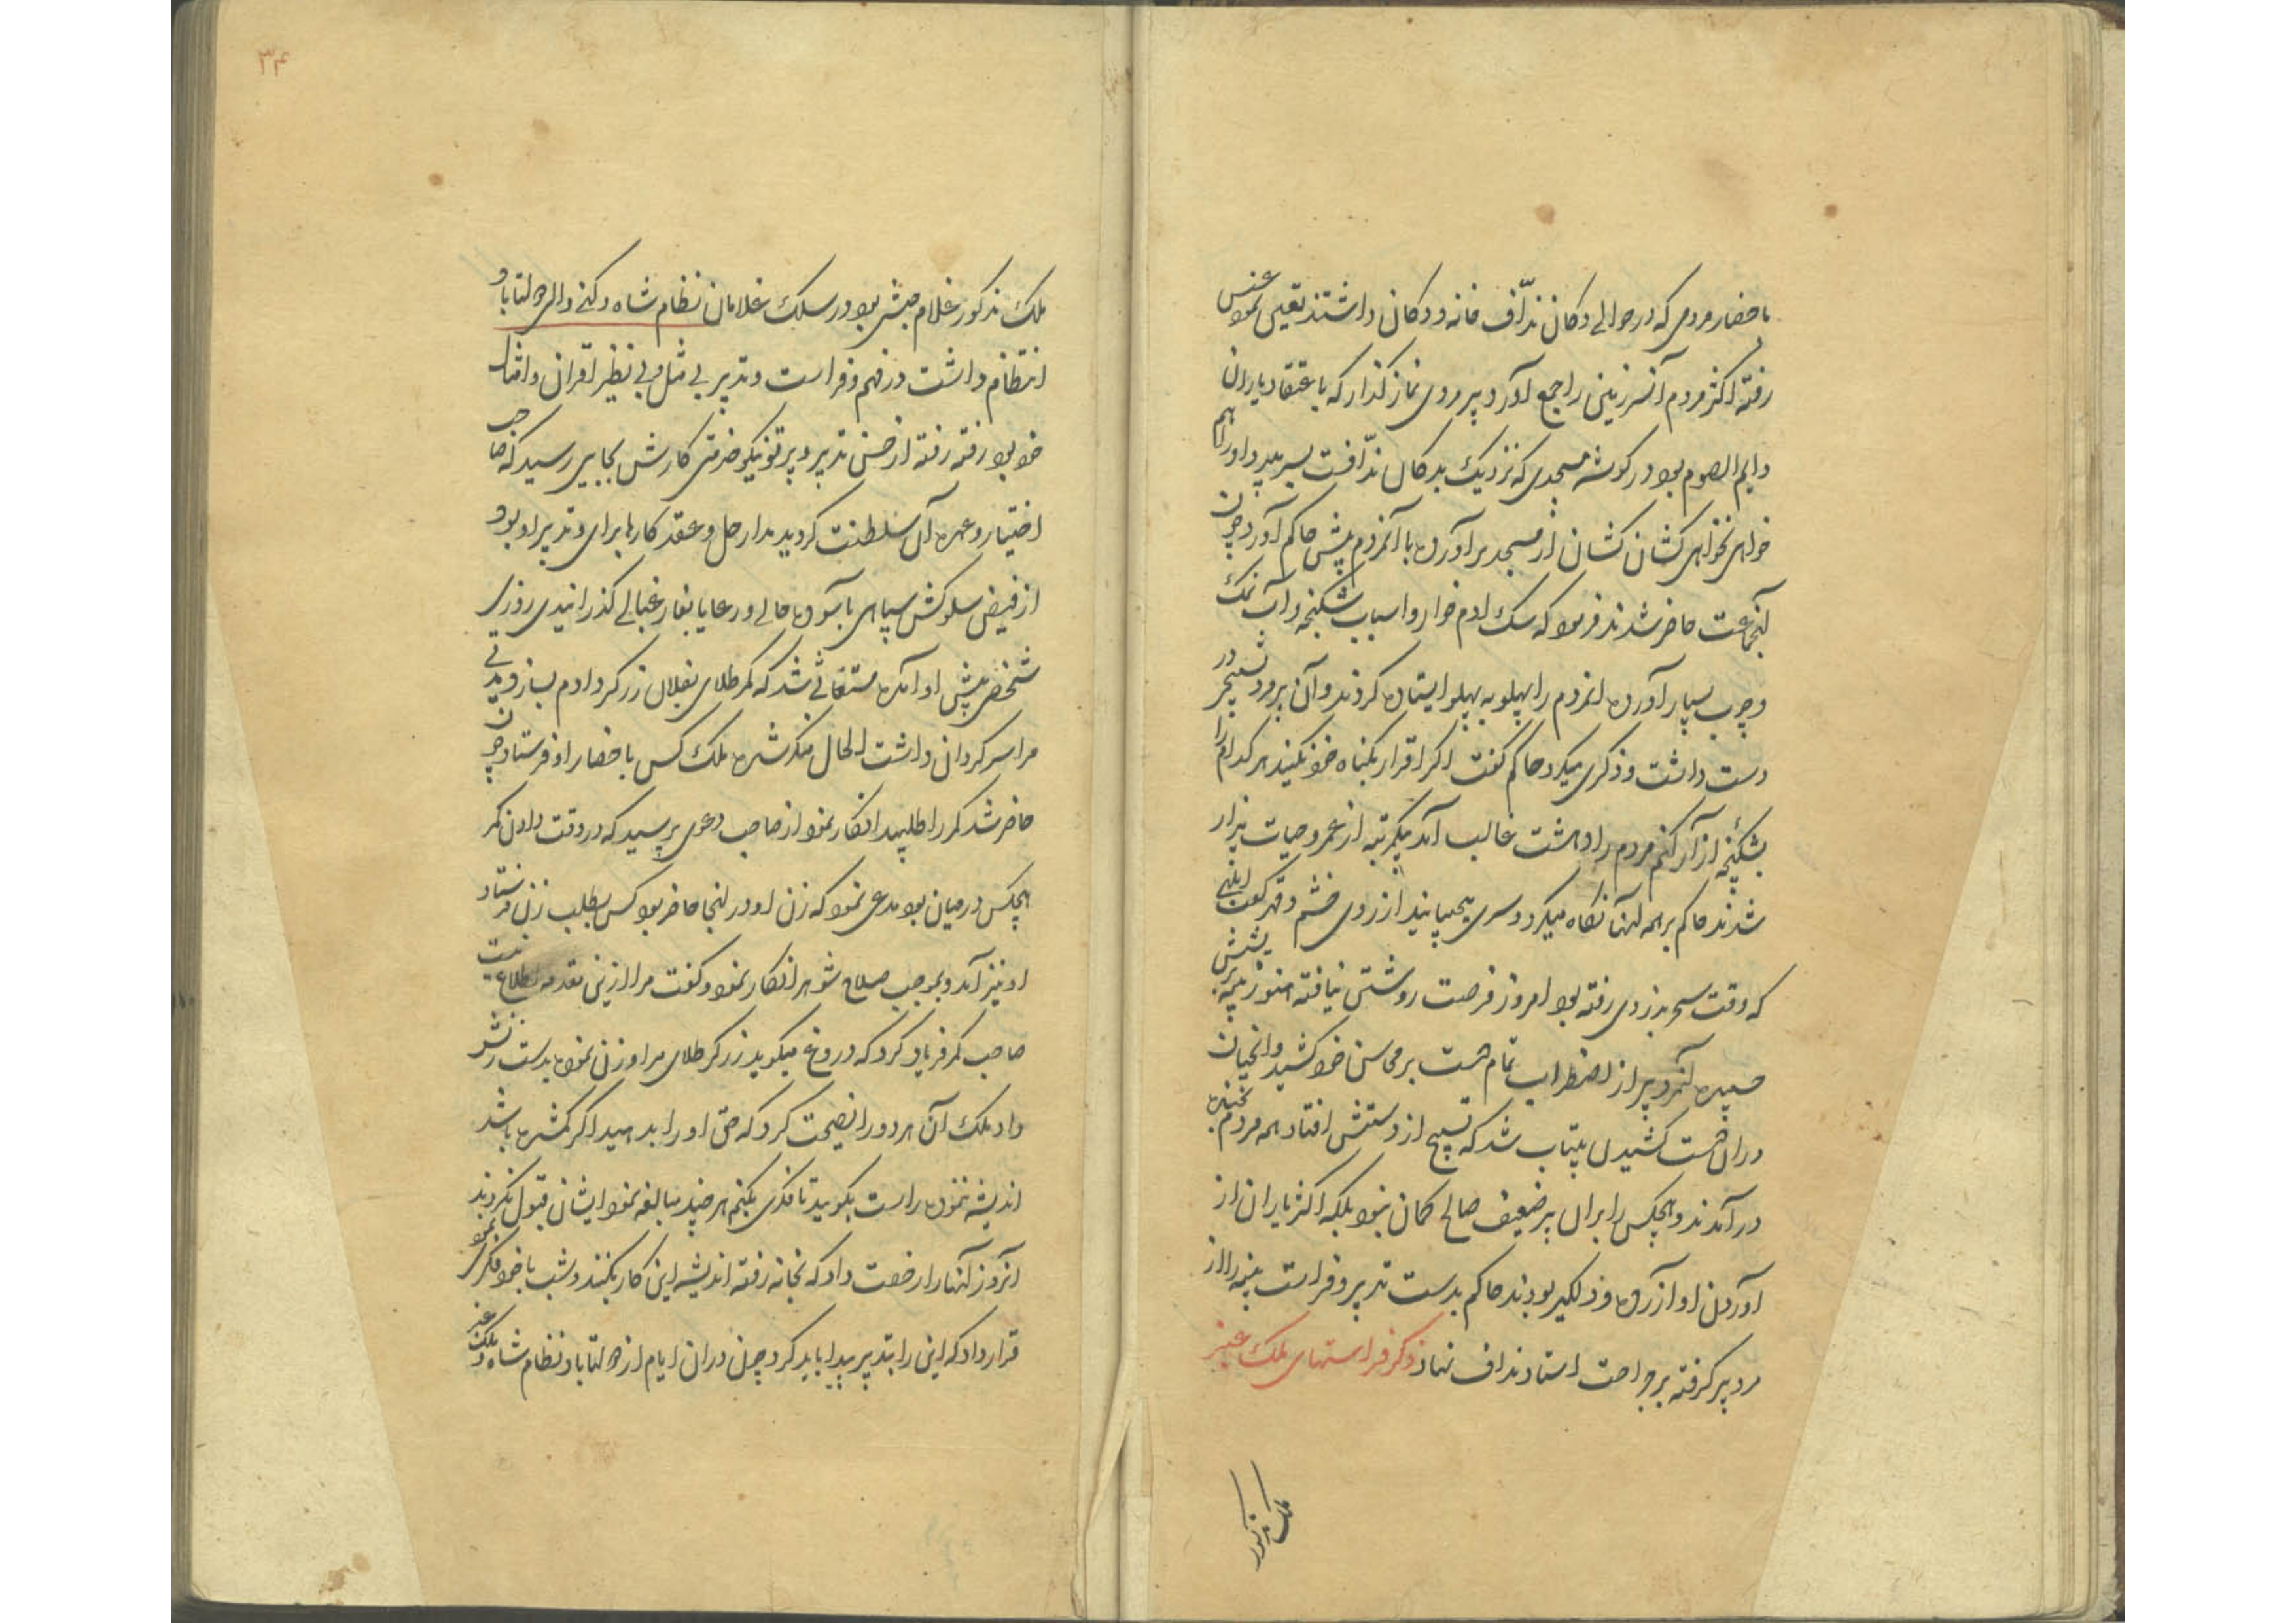 باحضار مردمی که در حوالے دکان ندّاف خانه و دکان داشتند تعین نمود عسس
رفته اکثر مردم آنسرزمینی را جمع آورد پیر مردی نماز گذار که باعتقاد یاران
دایم الصوم بود در گوشهٔ مسجدی که نزدیک بدکان ندّافست بسر میبرد او را هم
خواهی نخواهی کشان کشان از مسجد برآورده با آنمردم پیش حاکم آورد چون
آنجماعت حاضر شدند فرمود که سک ادم خوار و اسباب شکنجه و آب نمک
و چوب بسیار آورده انمردم را پهلو به پهلو ایستاده کردند و آن پیر مرد تسبیح در
دست داشت و ذکری میکرد حاکم گفت اگر اقرار بگناه خود نکنید هر کدام را
بشکنجه از آر کنم مردم را دهشت غالب آمد بیکمرتبه از عمر و حیات بیزار
شدند حاکم بر همه آنها نگاه میکرد و سری میجنبانید از روی خشم و قهر گفت
که وقت سحر بدزدی رفته بود امروز فرصت روشستن نیافته هنوز پنبه بریشش
چسپیده آنمرد پیر از اضطراب تمام دست بر محاسن خود کشید و انچنان
دران دست کشیدن بیتاب شد که تسبیح از دستش افتاد همه مردم بخنده
در آمدند و هیچکس را بران پیر ضعیف صالح گمان نبود بلکه اکثر یاران از
آوردن او آزرده و دلگیر بودند حاکم بدست تدبیر و فراست پنبه را از
مرد پیر گرفته بر جراحت استاد نداف نهاد ذکر فراستهای ملک عنبر
ملک مذکور
۳۴
ملک مذکور غلام حبشی بود در سلک غلامان نظام شاه دکنے والی دولتاباد
انتظام داشت در فهم و فراست و تدبیر بے مثل و بی نظیر اقران و امثال
خود بود رفته رفته از حسن تدبیر و پرتو نیکو خدمتی کارش بجایی رسید که صاحب
اختیار و عمده آن سلطنت گردید مدار حل و عقد کارها برای و تدبیر او بود و
از فیض سلوکش سپاهی باسوده حالے و رعایا بفارغبالے گذرانیدی روزی
شخصی پیش او آمده مستغاثے شد که کمر طلای بفلان زرگر دادم بسازد مدتے
مرا سرگردان داشت الحال منکر شده ملک کس باحضار او فرستاد چون
حاضر شد کمر را طلبید انکار نمود از صاحب دعوی پرسید که در وقت دادن کمر
هیچکس درمیان بود مدعی نمود که زن او در آنجا حاضر بود کس بطلب زن فرستاد
او نیز آمد و بموجب صلاح شوهر انکار نمود و گفت مرا ازینی مقدمه اطلاع نیست
صاحب کمر فریاد کرد که دروغ میگوید زرگر طلای مرا وزن نموده بدست زنش
داد ملک آن هر دو را نصیحت کرد که حق او را بدهید اگر گم شده باشد
اندیشه ننموده راست بگویید تا فکری بکنیم هر چند مبالغه نمود ایشان قبول نکردند
آنروز آنها را رخصت داد که بخانه رفته اندیشه این کار بکنند و شب با خود فکری نمود
قرار داد که این را بتدبیر پیدا باید کرد چون دران ایام از دولتاباد نظام شاه و ملک عنبر